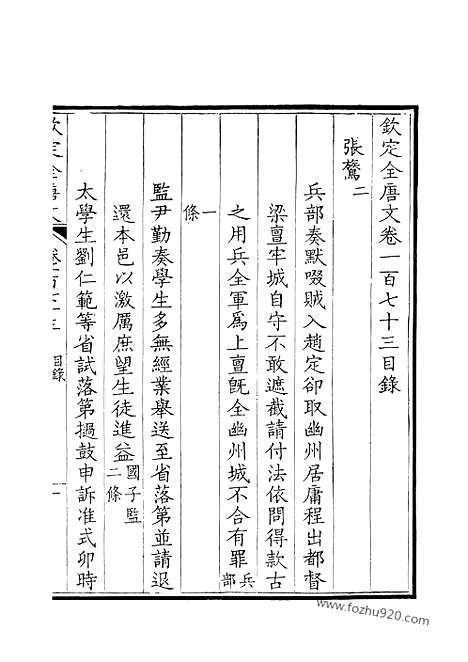 欽定全唐文卷一百七十三目錄
張鷟二
兵部奏默啜賊入趙定卻取幽州居庸程出都督
梁亶牢城自守不敢遮截請付法依問得款古
之用兵全軍爲上亶旣全幽州城不合有罪兵部
一條
監尹勤奏學生多無經業舉送至省落第並請退
還本邑以激厲庶望生徒進益國子監二條
太學生劉仁範等省試落第撾鼓申訴准式卯時
欽定全唐文 卷一百七十三 目錄 一
www.fozhu920.com